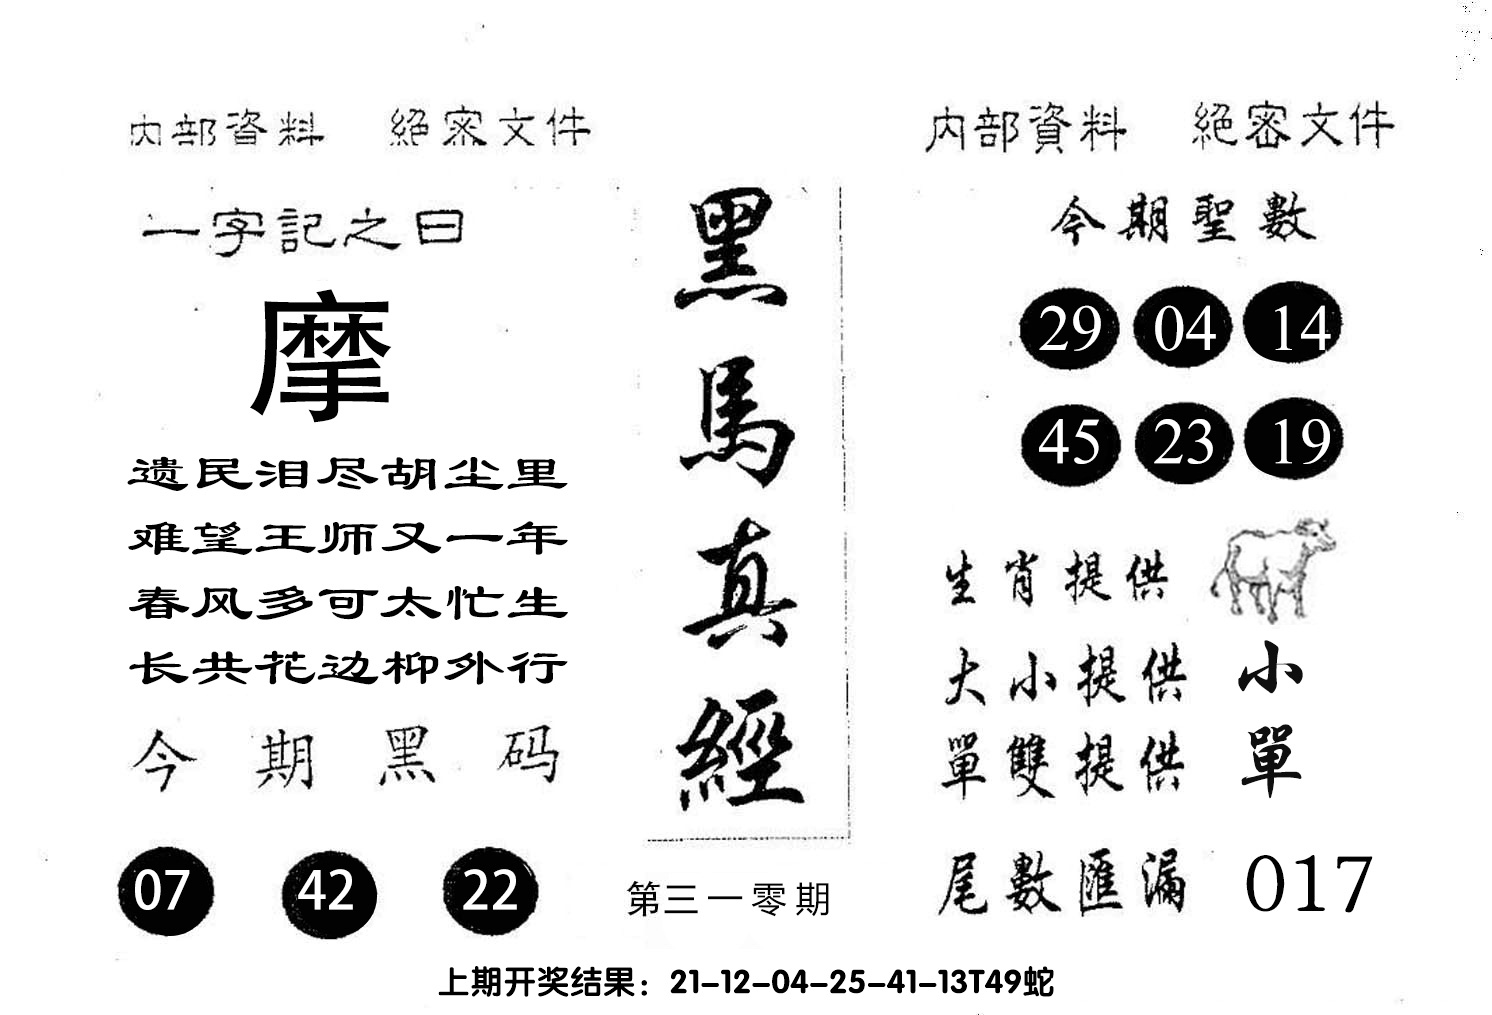 内部資料 絕密文件
一字記之曰
摩
遗民泪尽胡尘里
难望王师又一年
春风多可太忙生
长共花边柳外行
今期黑码
07 42 22
黑馬真經
第三一零期
内部資料 絕密文件
今期聖數
29 04 14
45 23 19
生肖提供
大小提供 小
單雙提供 單
尾數匯漏 017
上期开奖结果：21-12-04-25-41-13T49蛇